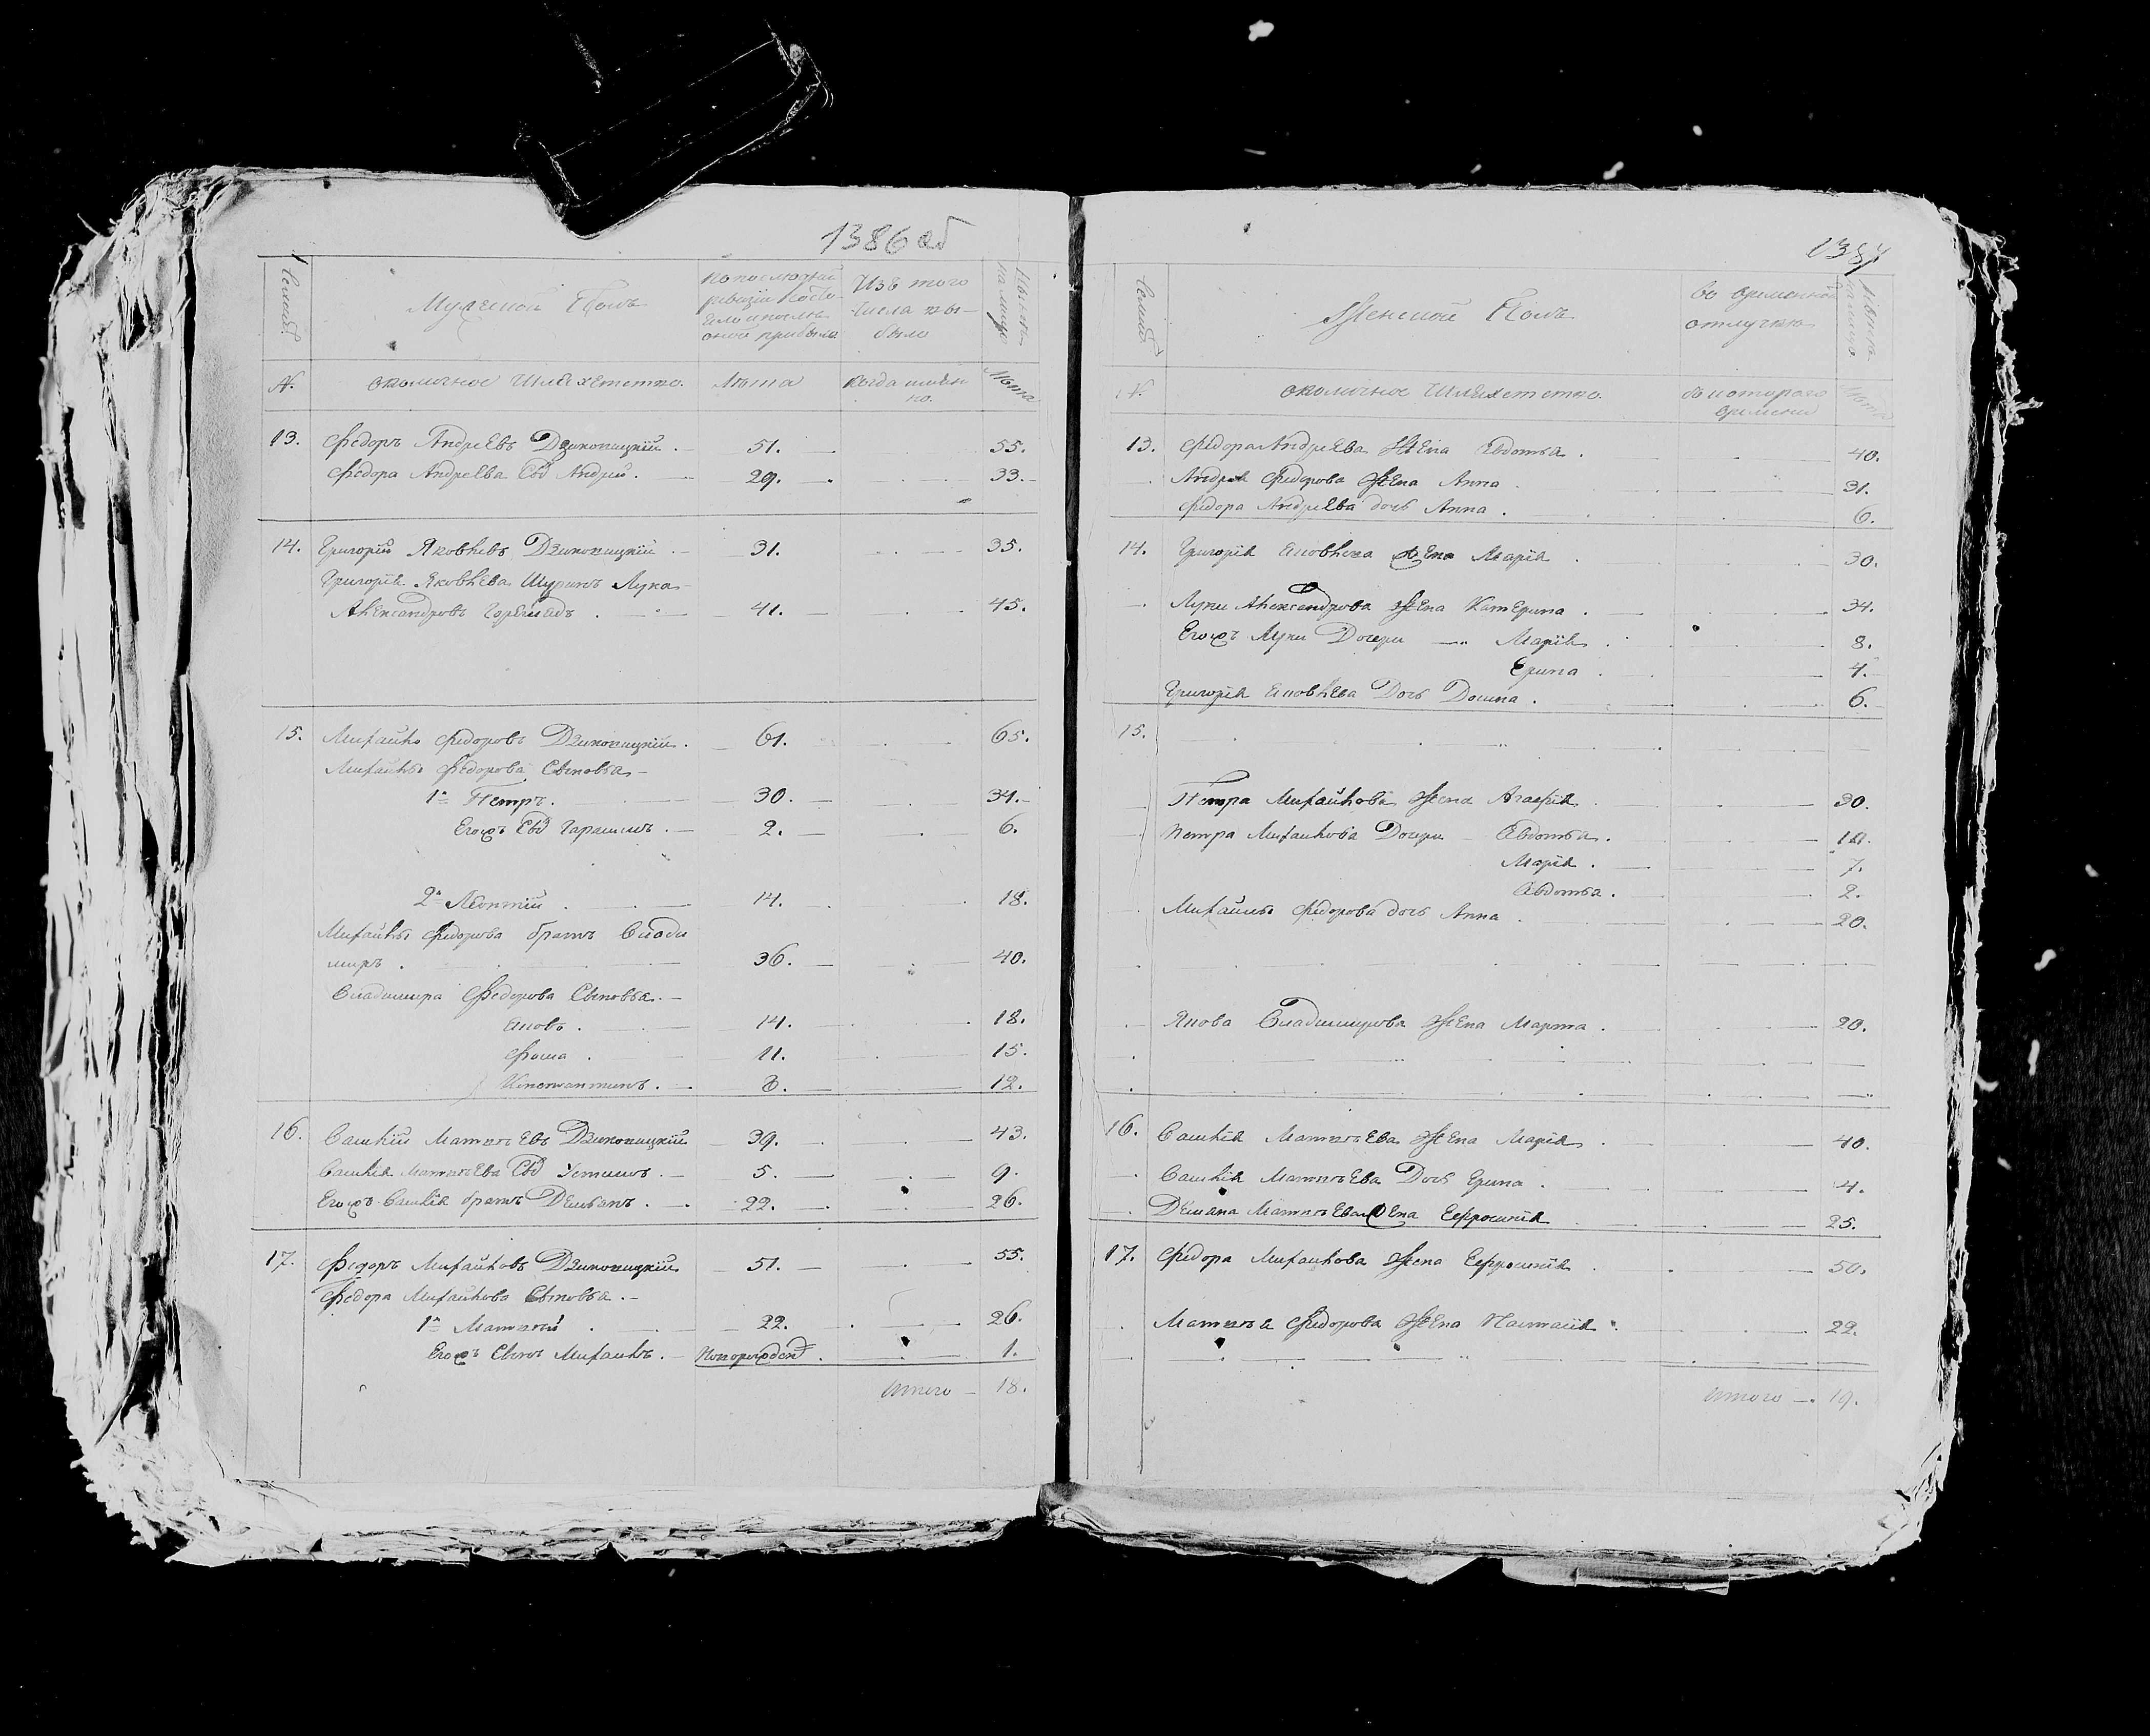 1386 об
Семьи
Мужеской Полъ
По последней
ревизии состо-
яло и после
оной прибыло
Изъ того
числа вы-
было
Ныне
на лицо
№.
околичное Шляхетство.
Лета
Когда имян
но.
Лета
13. Федоръ Андреевъ Дзиковицкий . 51. 55.
Федора Андреева Сын Андрей . 29. 33.
14. Григорий Яковлевъ Дзиковицкий . 31. 35.
Григория Яковлева Шуринъ Лука
Александровъ . 41. 45.
15. Михайло Федоровъ Дзиковицкий . 61. 65.
Михайлы Федорова Сыновья
1й Петръ . 30. 34.
Егожъ Сын Гарасимъ . 2. 6.
2й Леонтий . 14. 18.
Михайлы Федорова братъ Влади
миръ . 36. 40.
Владимира Федорова Сыновья .
Яковъ . 14. 18.
Фома . 11. 15.
Константинъ . 8. 12.
16. Матвеевъ Дзиковицкий 39. 43.
Матвеева Сын Устимъ . 5. 9.
Егожъ братъ Демьянъ . 22. 26.
17. Федоръ Михайловъ Дзиковицкий 51. 55.
Федора Михайлова Сыновья .
1й Матвей . 22. 26.
Егожъ Сынъ Михайло . Новорожден . 1.
Итого 18.
1387
Семьи
Женской Полъ
Во временной
отлучке
Ныне
на лицо.
№.
околичное Шляхетство.
Съ котораго
времени
Лета
13. Федора Андреева Жена Авдотья . 40.
Андрея Федорова Жена Анна . 31.
Федора Андреева дочь Анна . 6.
14. Григория Яковлева жена Мария . 30.
Луки Александрова Жена Катерина . 34.
Егожъ Луки Дочери Мария . 8.
Ерина . 4.
Григория Яковлева Дочь Домна . 6.
15.
Петра Михайлова Жена Агафия . 30.
Петра Михайлова Дочери Авдотья .
Мария . 7.
Авдотья . 2.
Михайлы Федорова дочь Анна . 20.
Якова Владимирова Жена Марта . 20.
16. Матвеева Жена Мария . 40.
Матвеева Дочь Ерина . 4.
Демяна Матвеева Жена Ефросиния 25.
17. Федора Михайлова Жена Ефросиния . 50.
Матвея Федорова Жена Настасия . 22.
Итого 19.